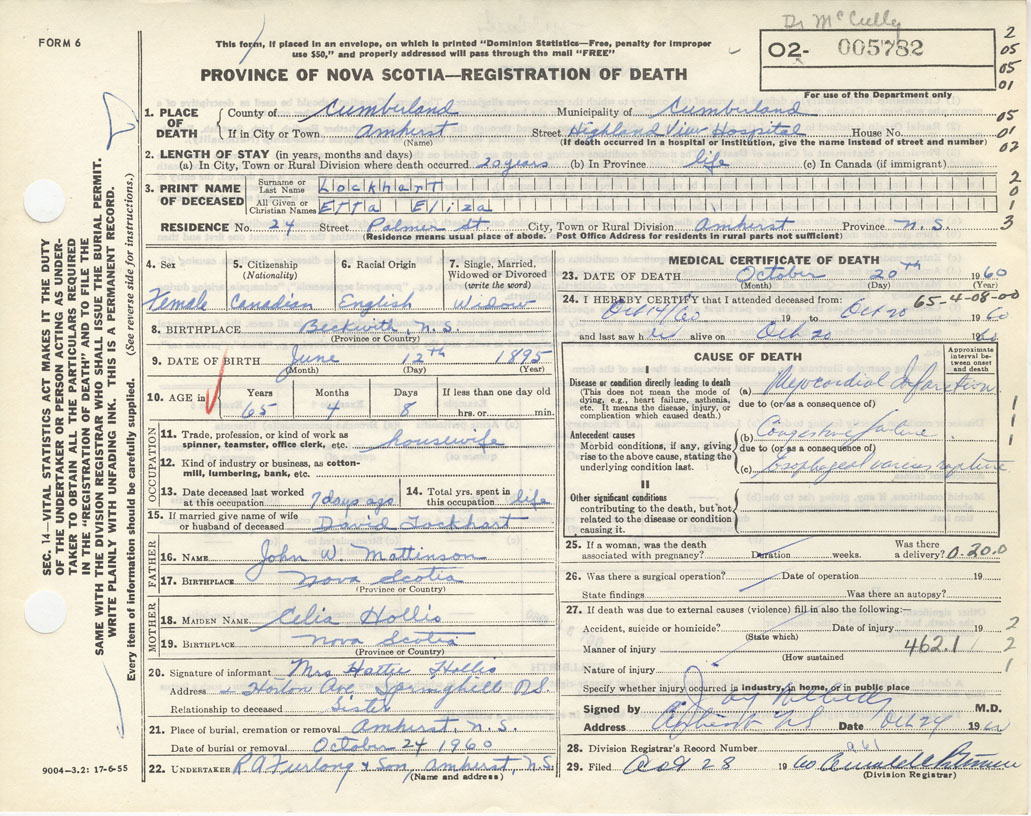 Dr McCully
FORM 6
This form, if placed in an envelope, on which is printed "Dominion Statistics—Free, penalty for improper
use $50," and properly addressed will pass through the mail "FREE"
O2- 005782
For use of the Department only
2
05
05
01
PROVINCE OF NOVA SCOTIA—REGISTRATION OF DEATH
1. PLACE OF DEATH
County of Cumberland Municipality of Cumberland
05
If in City or Town Amherst Street Highland View Hospital House No.
01
(Name) (If death occurred in a hospital or institution, give the name instead of street and number)
02
2. LENGTH OF STAY (in years, months and days)
(a) In City, Town or Rural Division where death occurred 20 years (b) In Province life (c) In Canada (if immigrant)
3. PRINT NAME OF DECEASED
Surname or Last Name Lockhart
2
0
All Given or Christian Names Etta Eliza
1
RESIDENCE No. 24 Street Palmer St. City, Town or Rural Division Amherst Province N.S.
3
(Residence means usual place of abode. Post Office Address for residents in rural parts not sufficient)
4. Sex Female
5. Citizenship (Nationality) Canadian
6. Racial Origin English
7. Single, Married, Widowed or Divorced (write the word) Widow
8. BIRTHPLACE Beckwith, N.S.
(Province or Country)
9. DATE OF BIRTH June 12th 1895
(Month) (Day) (Year)
10. AGE in Years Months Days If less than one day old
65 4 8 hrs. or min.
OCCUPATION
11. Trade, profession or kind of work as spinner, teamster, office clerk, etc. housewife
12. Kind of industry or business, as cotton-mill, lumbering, bank, etc.
13. Date deceased last worked at this occupation 7 days ago
14. Total yrs. spent in this occupation life
15. If married give name of wife or husband of deceased David Lockhart
FATHER
16. NAME John W Mattinson
17. BIRTHPLACE Nova Scotia
(Province or Country)
MOTHER
18. MAIDEN NAME Celia Hollis
19. BIRTHPLACE Nova Scotia
(Province or Country)
20. Signature of informant Mrs Hattie Hollis
Address Horton Ave Springhill N.S.
Relationship to deceased Sister
21. Place of burial, cremation or removal Amherst, N.S.
Date of burial or removal October 24 1960
22. UNDERTAKER R A Furlong & Son, Amherst, N.S.
(Name and address)
MEDICAL CERTIFICATE OF DEATH
23. DATE OF DEATH October 20th 1960
(Month) (Day) (Year)
24. I HEREBY CERTIFY that I attended deceased from: 65-4-08-00
Oct 14/60 19 to Oct 20 1960
and last saw h alive on Oct 20 1960
CAUSE OF DEATH
Approximate interval between onset and death
I
Disease or condition directly leading to death
(This does not mean the mode of dying, e.g., heart failure, asthenia, etc. It means the disease, injury, or complication which caused death.)
(a) Myocardial Infarction
due to (or as a consequence of)
Antecedent causes
Morbid conditions, if any, giving rise to the above cause, stating the underlying condition last.
(b) Congestive failure
due to (or as a consequence of)
(c) Esophageal varices rupture
1
1
1
II
Other significant conditions
contributing to the death, but not related to the disease or condition causing it.
25. If a woman, was the death associated with pregnancy? Duration weeks. Was there a delivery? 0.20.0
26. Was there a surgical operation? Date of operation 19
State findings Was there an autopsy?
27. If death was due to external causes (violence) fill in also the following:—
Accident, suicide or homicide? Date of injury 19 2
(State which)
Manner of injury 462.1 2
(How sustained)
Nature of injury 1
Specify whether injury occurred in industry, in home, or in public place
Signed by M.D.
Address Amherst NS Date Oct 24 1960
28. Division Registrar's Record Number 961
29. Filed Oct 28 1960
(Division Registrar)
SEC. 14—VITAL STATISTICS ACT MAKES IT THE DUTY
OF THE UNDERTAKER OR PERSON ACTING AS UNDER-
TAKER TO OBTAIN ALL THE PARTICULARS REQUIRED
IN THE "REGISTRATION OF DEATH" AND TO FILE THE
SAME WITH THE DIVISION REGISTRAR WHO SHALL ISSUE THE BURIAL PERMIT.
WRITE PLAINLY WITH UNFADING INK. THIS IS A PERMANENT RECORD.
Every item of information should be carefully supplied. (See reverse side for instructions.)
9004—3.2: 17-6-55